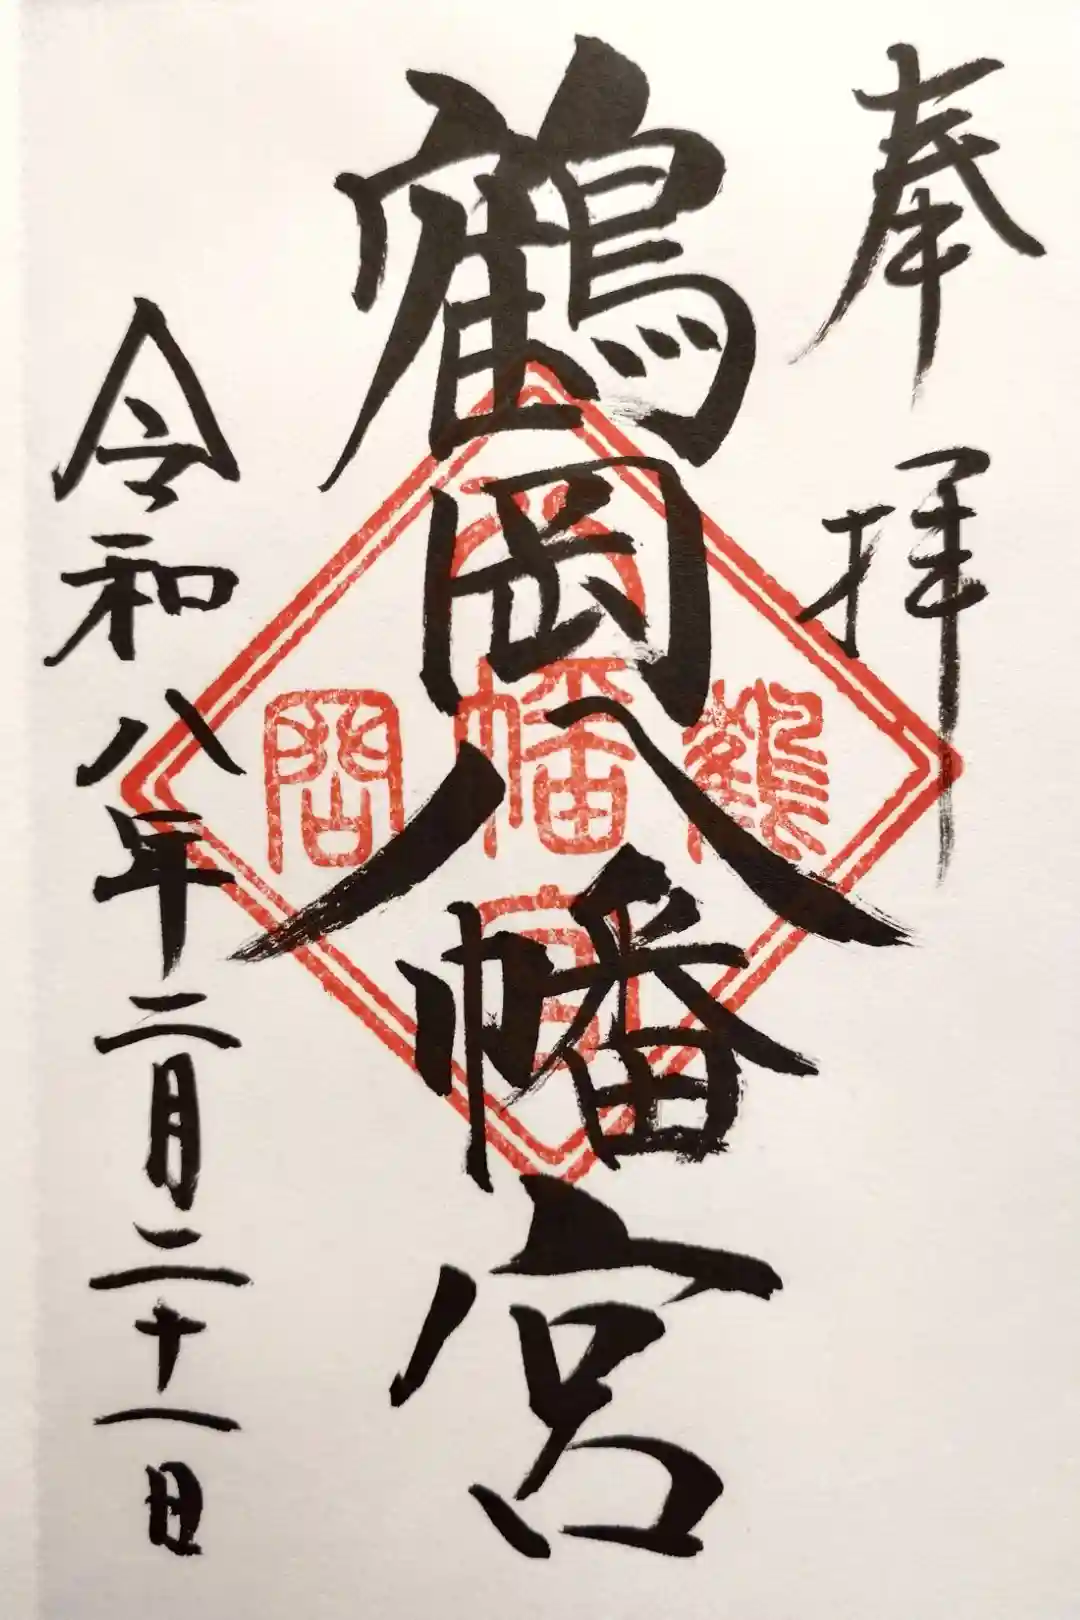 奉拝
鶴岡八幡宮
令和八年二月二十一日
鶴岡八幡宮